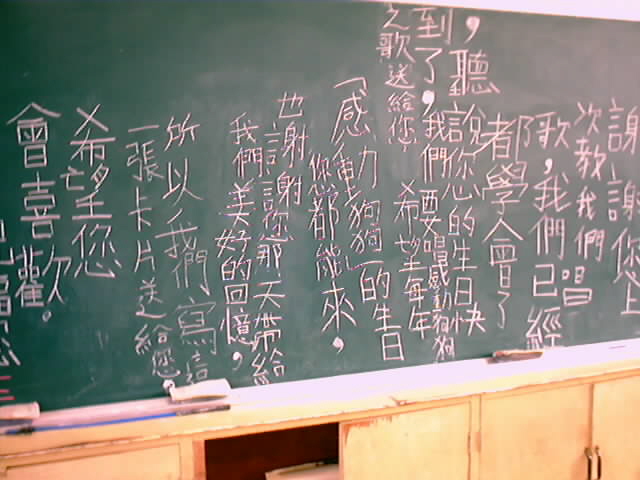 謝謝您上
次教我們唱
歌，我們已經
都學會了
，聽說您的生日快
到了，我們要唱感動狗狗
之歌送給您
希望每年
「感動狗狗」的生日
您都能來，
也謝謝您那天帶給
我們美好的回憶，
所以我們寫這
一張卡片送給您
希望您
會喜歡。